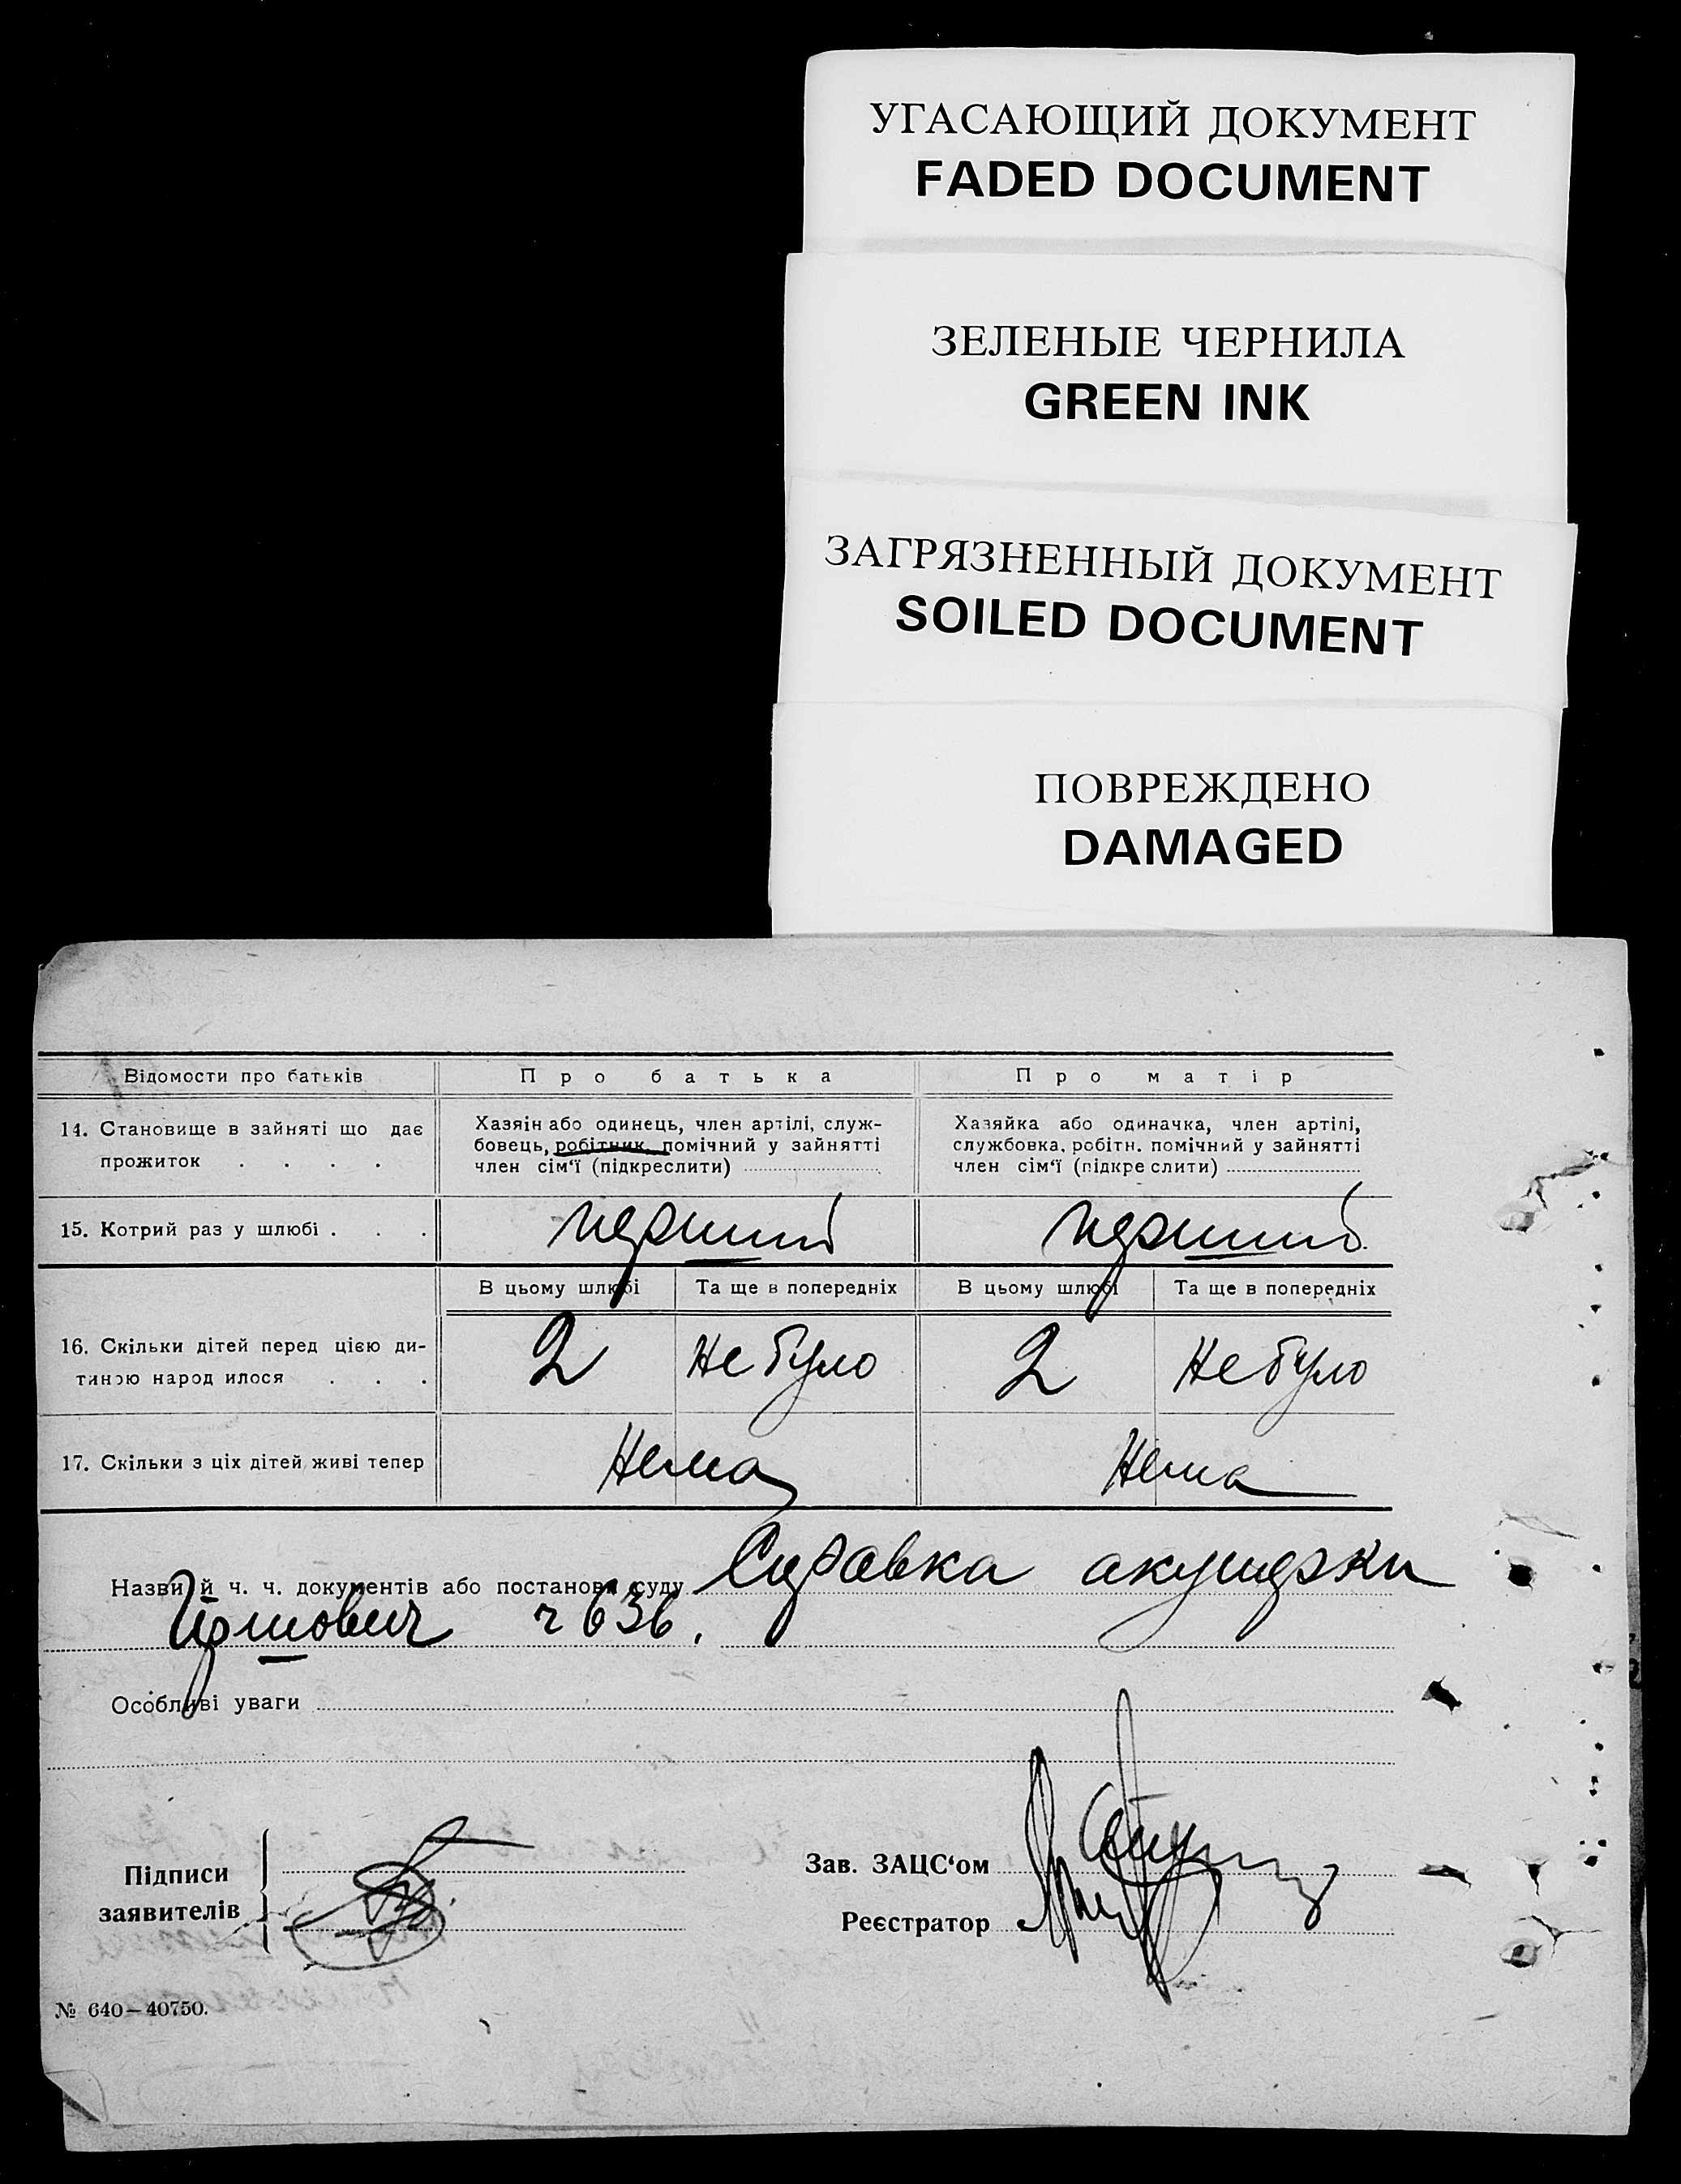 УГАСАЮЩИЙ ДОКУМЕНТ
FADED DOCUMENT
ЗЕЛЕНЫЕ ЧЕРНИЛА
GREEN INK
ЗАГРЯЗНЕННЫЙ ДОКУМЕНТ
SOILED DOCUMENT
ПОВРЕЖДЕНО
DAMAGED
Відомости про батьків
Про батька
Про матір
14. Становище в зайняті що дає
прожиток . . . .
Хазяін або одинець, член артілі, служ-
бовець, робітник, помічний у зайнятті
член сім‘ї (підкреслити)
Хазяйка або одиначка, член артілі,
службовка, робітн. помічний у зайнятті
член сім‘ї (підкреслити)
15. Котрий раз у шлюбі . . .
перший
перший
В цьому шлюбі
Та ще в попередніх
В цьому шлюбі
Та ще в попередніх
16. Скільки дітей перед цією ди-
тиною народилося . . .
2
Не було
2
Не було
17. Скільки з ціх дітей живі тепер
Нема
Нема
Назви й ч. ч. документів або постанови суду Справка акушерки
ч 636.
Особливі уваги
Підписи
заявителів
Зав. ЗАЦС‘ом
Реєстратор
№ 640—40750.